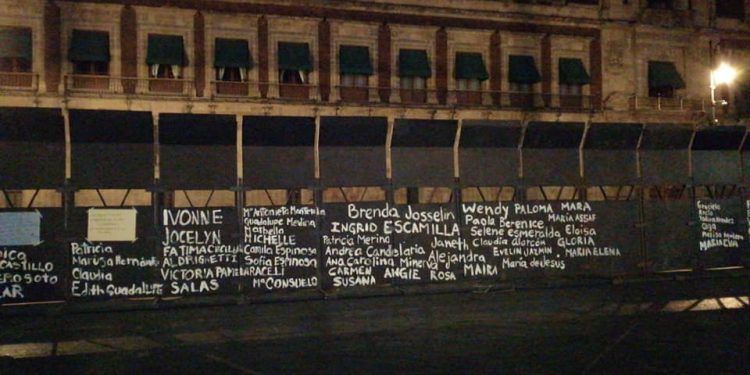 CASTILLO
SOTO
LAR
Patricia
Maruja Hernández
Claudia
Edith Guadalupe
IVONNE
JOCELYN
FATIMA CECILIA
ALDRIGHETTI
VICTORIA PAMELA
SALAS
Mª Antonieta
Guadalupe Medina
MICHELLE
Camila Espinosa
Sofía Espinosa
ARACELI
Mª CONSUELO
Brenda Josselin
INGRID ESCAMILLA
Patricia Merino
Andrea Candelaria
Ana Carolina Minerva
CARMEN ANGIE ROSA
SUSANA
Janeth
Alejandra
MAIRA
Wendy PALOMA MARA
Paola Berenice MARIA ASSAF
Selene Esmeralda Eloisa
Claudia alarcón GLORIA
EVELIN JAZMIN MARIA ELENA
María de Jesus
Graciela
Rocío
Olga
MARIA EVA